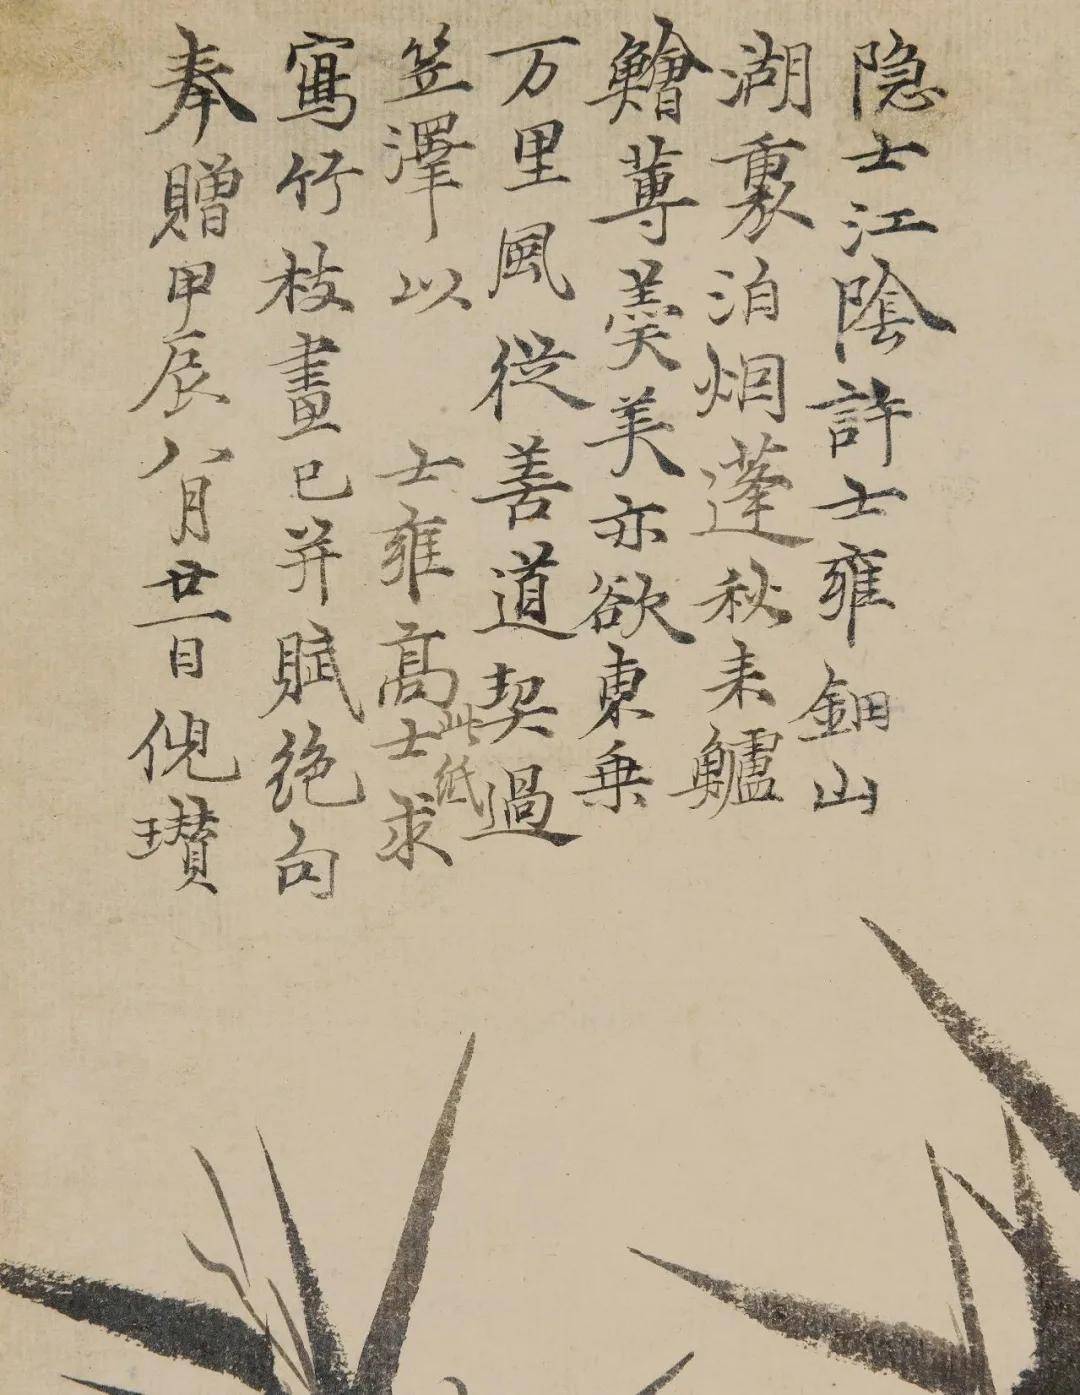 隐士江陰許士雍鈿山
湖裏泊烟蓬秋来鱸
鱠蓴羹美亦欲東乗
万里風從善道契過
笠澤以此紙
士雍高士求
寫竹枝畫已并賦絶句
奉贈甲辰八月廿一日倪瓚